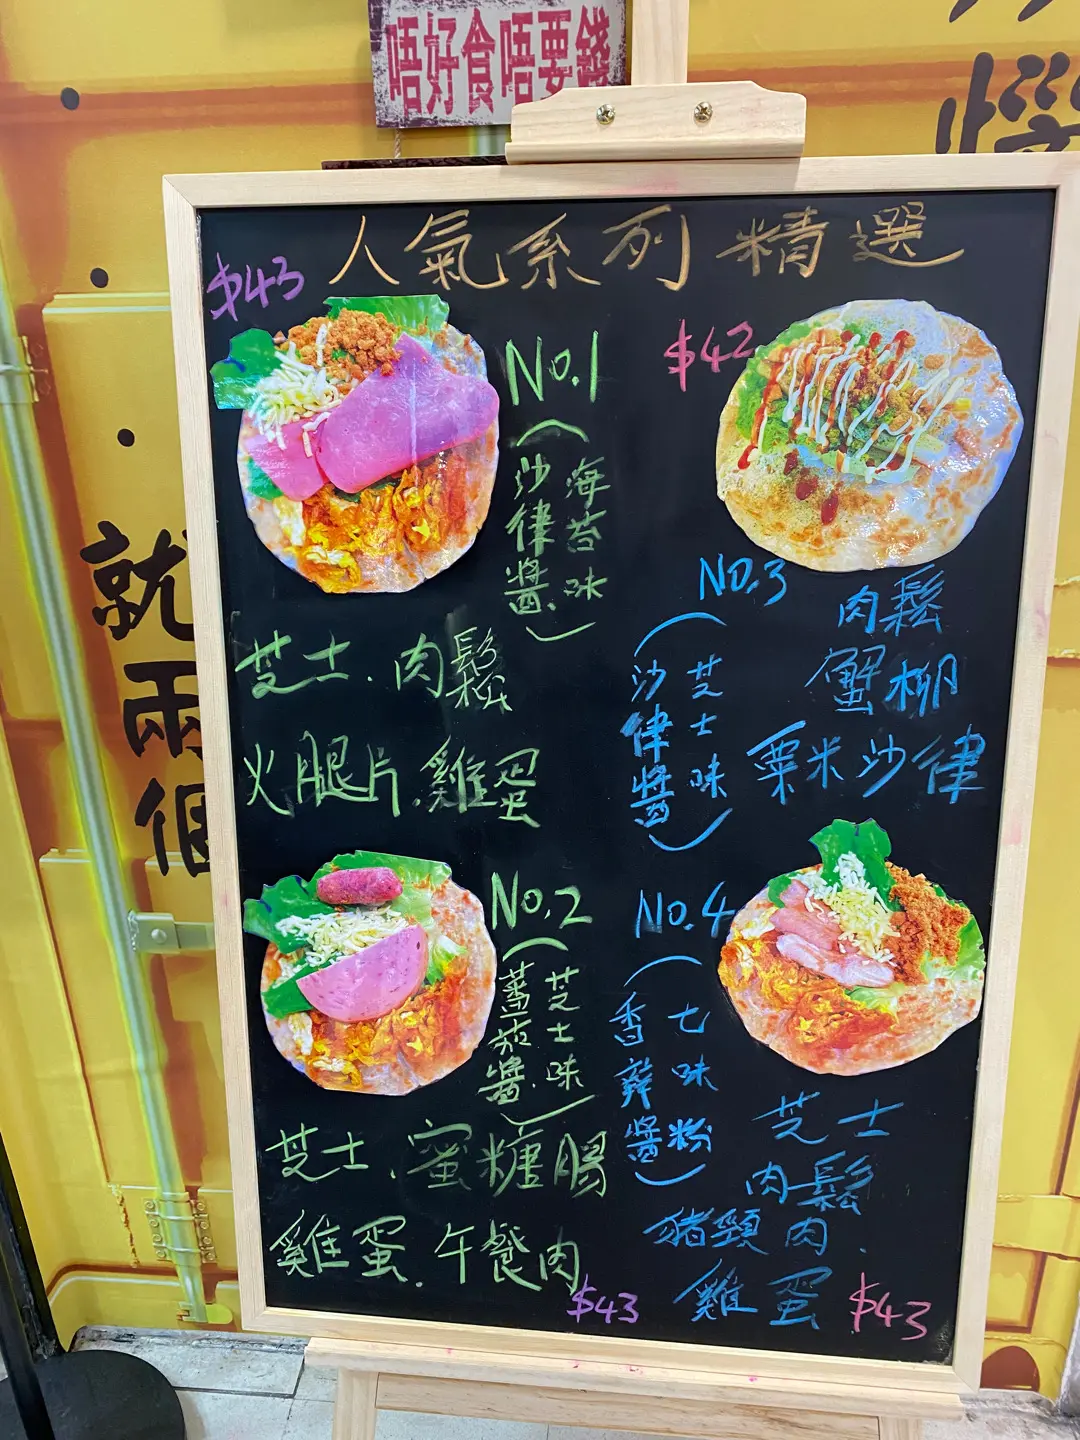 唔好食唔要錢
就兩個
人氣系列精選
$43
No.1
(海苔味
沙律醬.)
芝士.肉鬆
火腿片.雞蛋
No.2
(芝士味
蕃茄醬.)
芝士.蜜糖腸
雞蛋.午餐肉
$43
$42
No.3
(芝士味
沙律醬)
肉鬆
蟹柳
粟米沙律
No.4
(七味粉
香辣醬)
芝士
肉鬆
豬頸肉.
雞蛋
$43